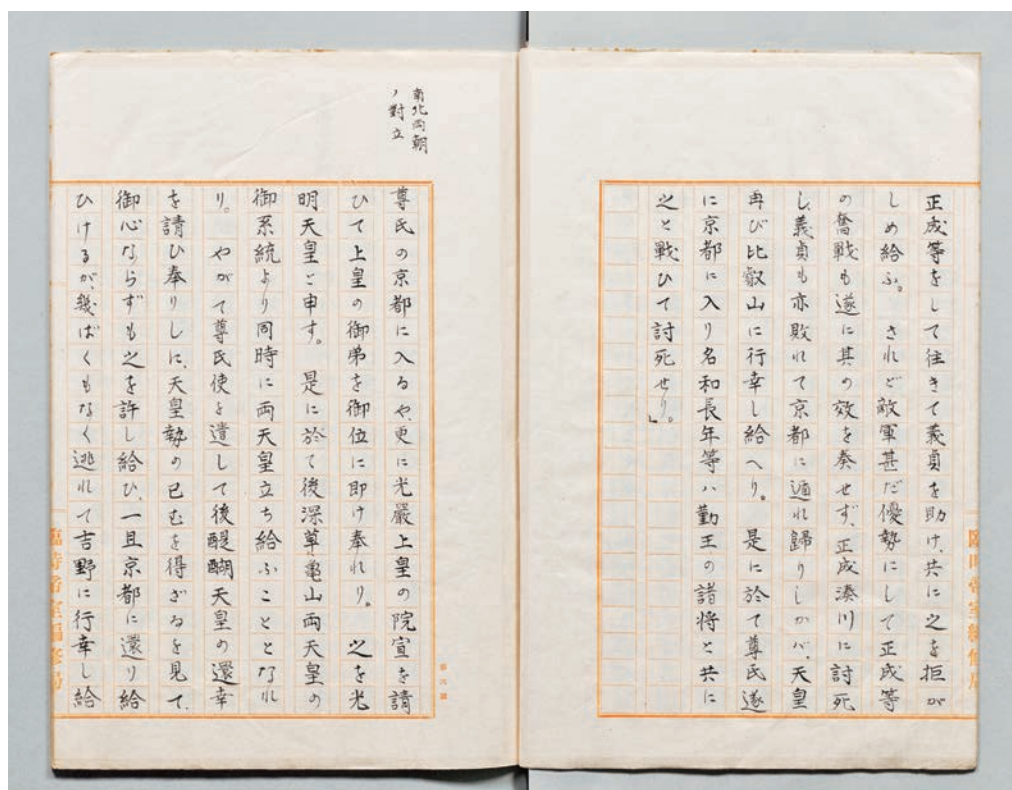 正成等をして往きて義貞を助け、共に之を拒が
しめ給ふ。されど敵軍甚だ優勢にして正成等
の奮戰も遂に其の效を奏せず、正成湊川に討死
し、義貞も亦敗れて京都に遁れ歸りしかバ、天皇
再び比叡山に行幸し給へり。是に於て尊氏遂
に京都に入り名和長年等ハ勤王の諸将と共に
之と戰ひて討死せり。」
南北両朝
ノ對立
尊氏の京都に入るや更に光嚴上皇の院宣を請
ひて上皇の御弟を御位に即け奉れり。之を光
明天皇と申す。是に於て後深草亀山両天皇の
御系統より同時に両天皇立ち給ふこととなれ
り。やがて尊氏使を遣して後醍醐天皇の還幸
を請ひ奉りしに、天皇勢の已むを得ざるを見て、
御心ならずも之を許し給ひ、一旦京都に還り給
ひけるが、幾ばくもなく逃れて吉野に行幸し給
臨時帝室編修局
臨時帝室編修局